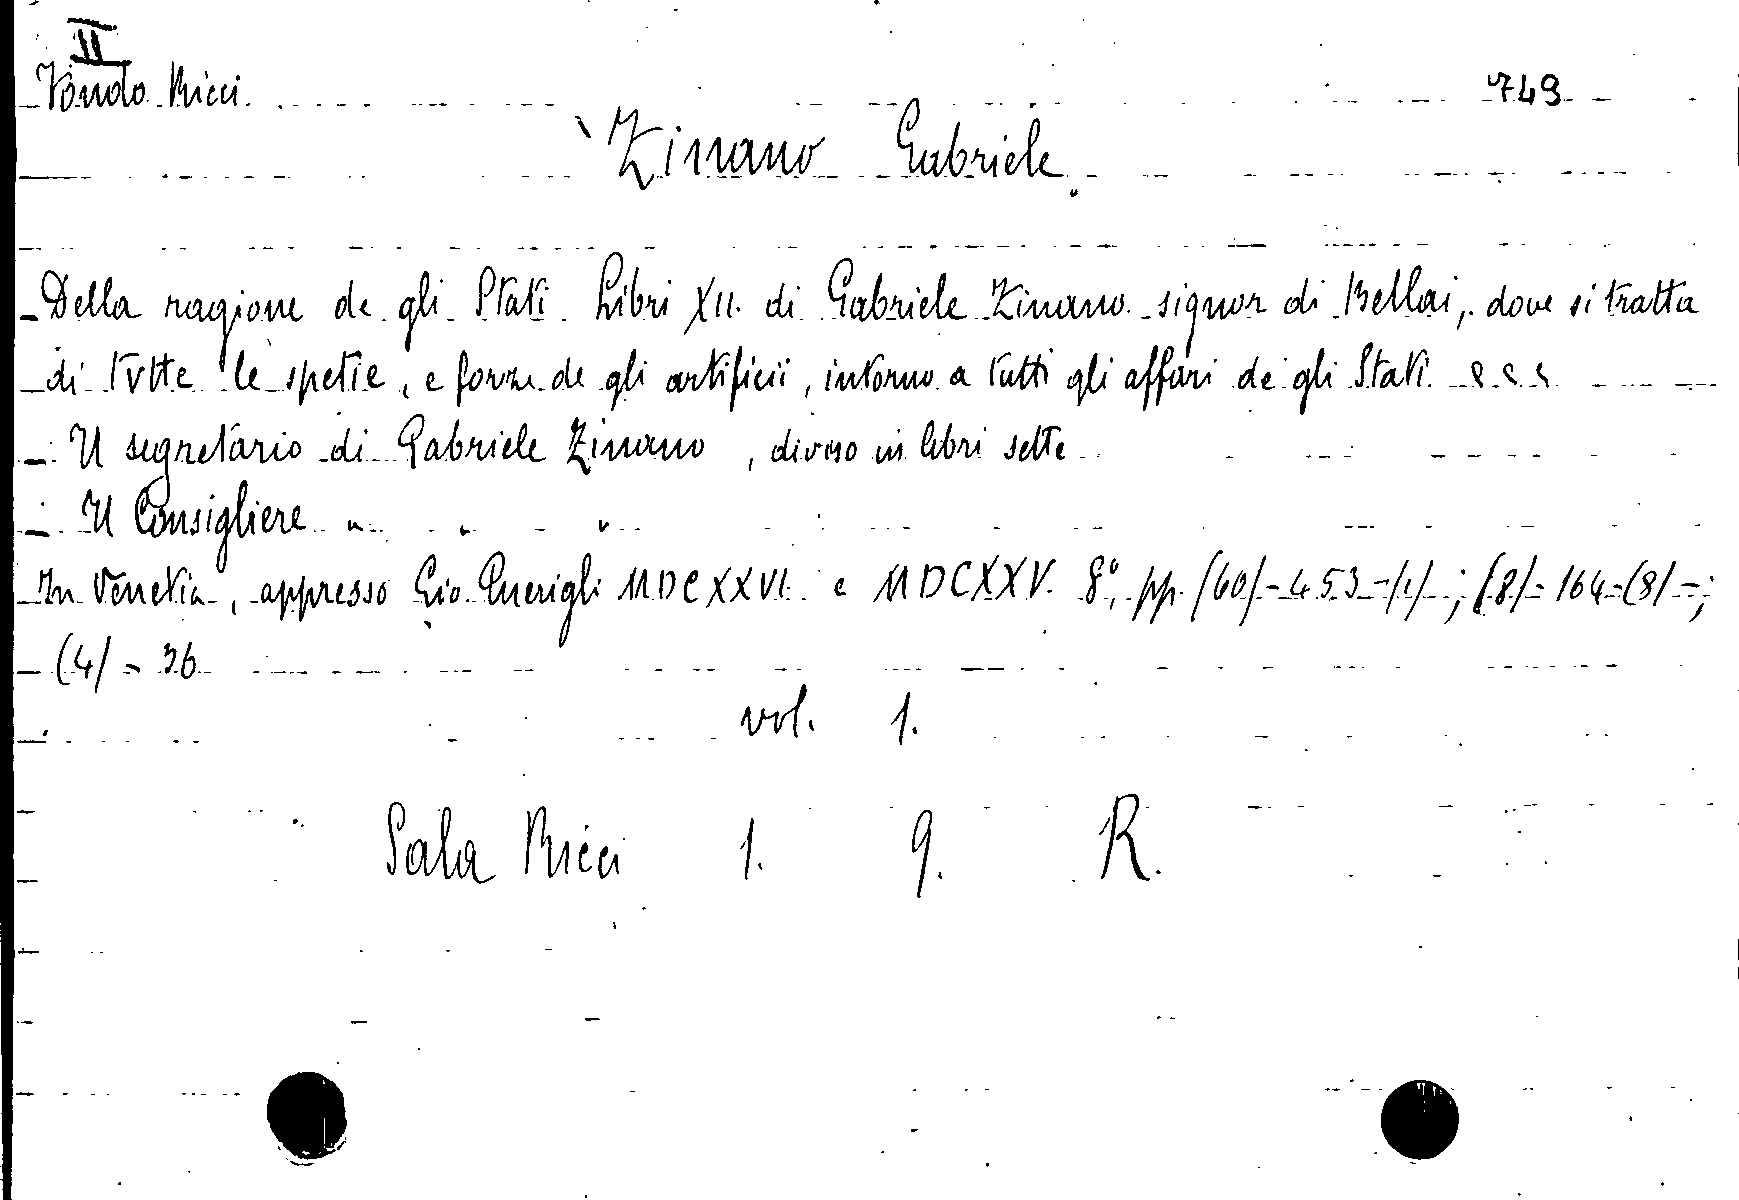 II
Fondo Ricci. 749
Zinano Gabriele.
- Della ragione de gli Stati Libri XII. di Gabriele Zinano signor di Bellai, dove si tratta
di tutte le spetie, e forze de gli artificii, intorno a tutti gli affari de gli Stati. & & &
- Il segretario di Gabriele Zinano, diviso in libri sette
- Il Consigliere " " "
In Venetia, appresso Gio. Guerigli MDCXXVI. e MDCXXV. 8°, pp. (60)-453-(1)-; (8)-164-(8)-;
(4)-36
vol. 1.
Sala Ricci 1. 9. R.